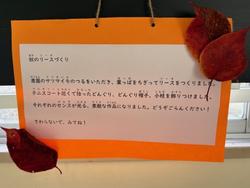 秋のリースづくり
農園のサツマイモのつるをいただき、葉っぱをちぎってリースをつくりました。
テニスコート近くで拾ったどんぐり、どんぐり帽子、小枝を飾りつけました。
それぞれのセンスが光る、素敵な作品になりました。どうぞごらんください！
さわらないで、みてね！